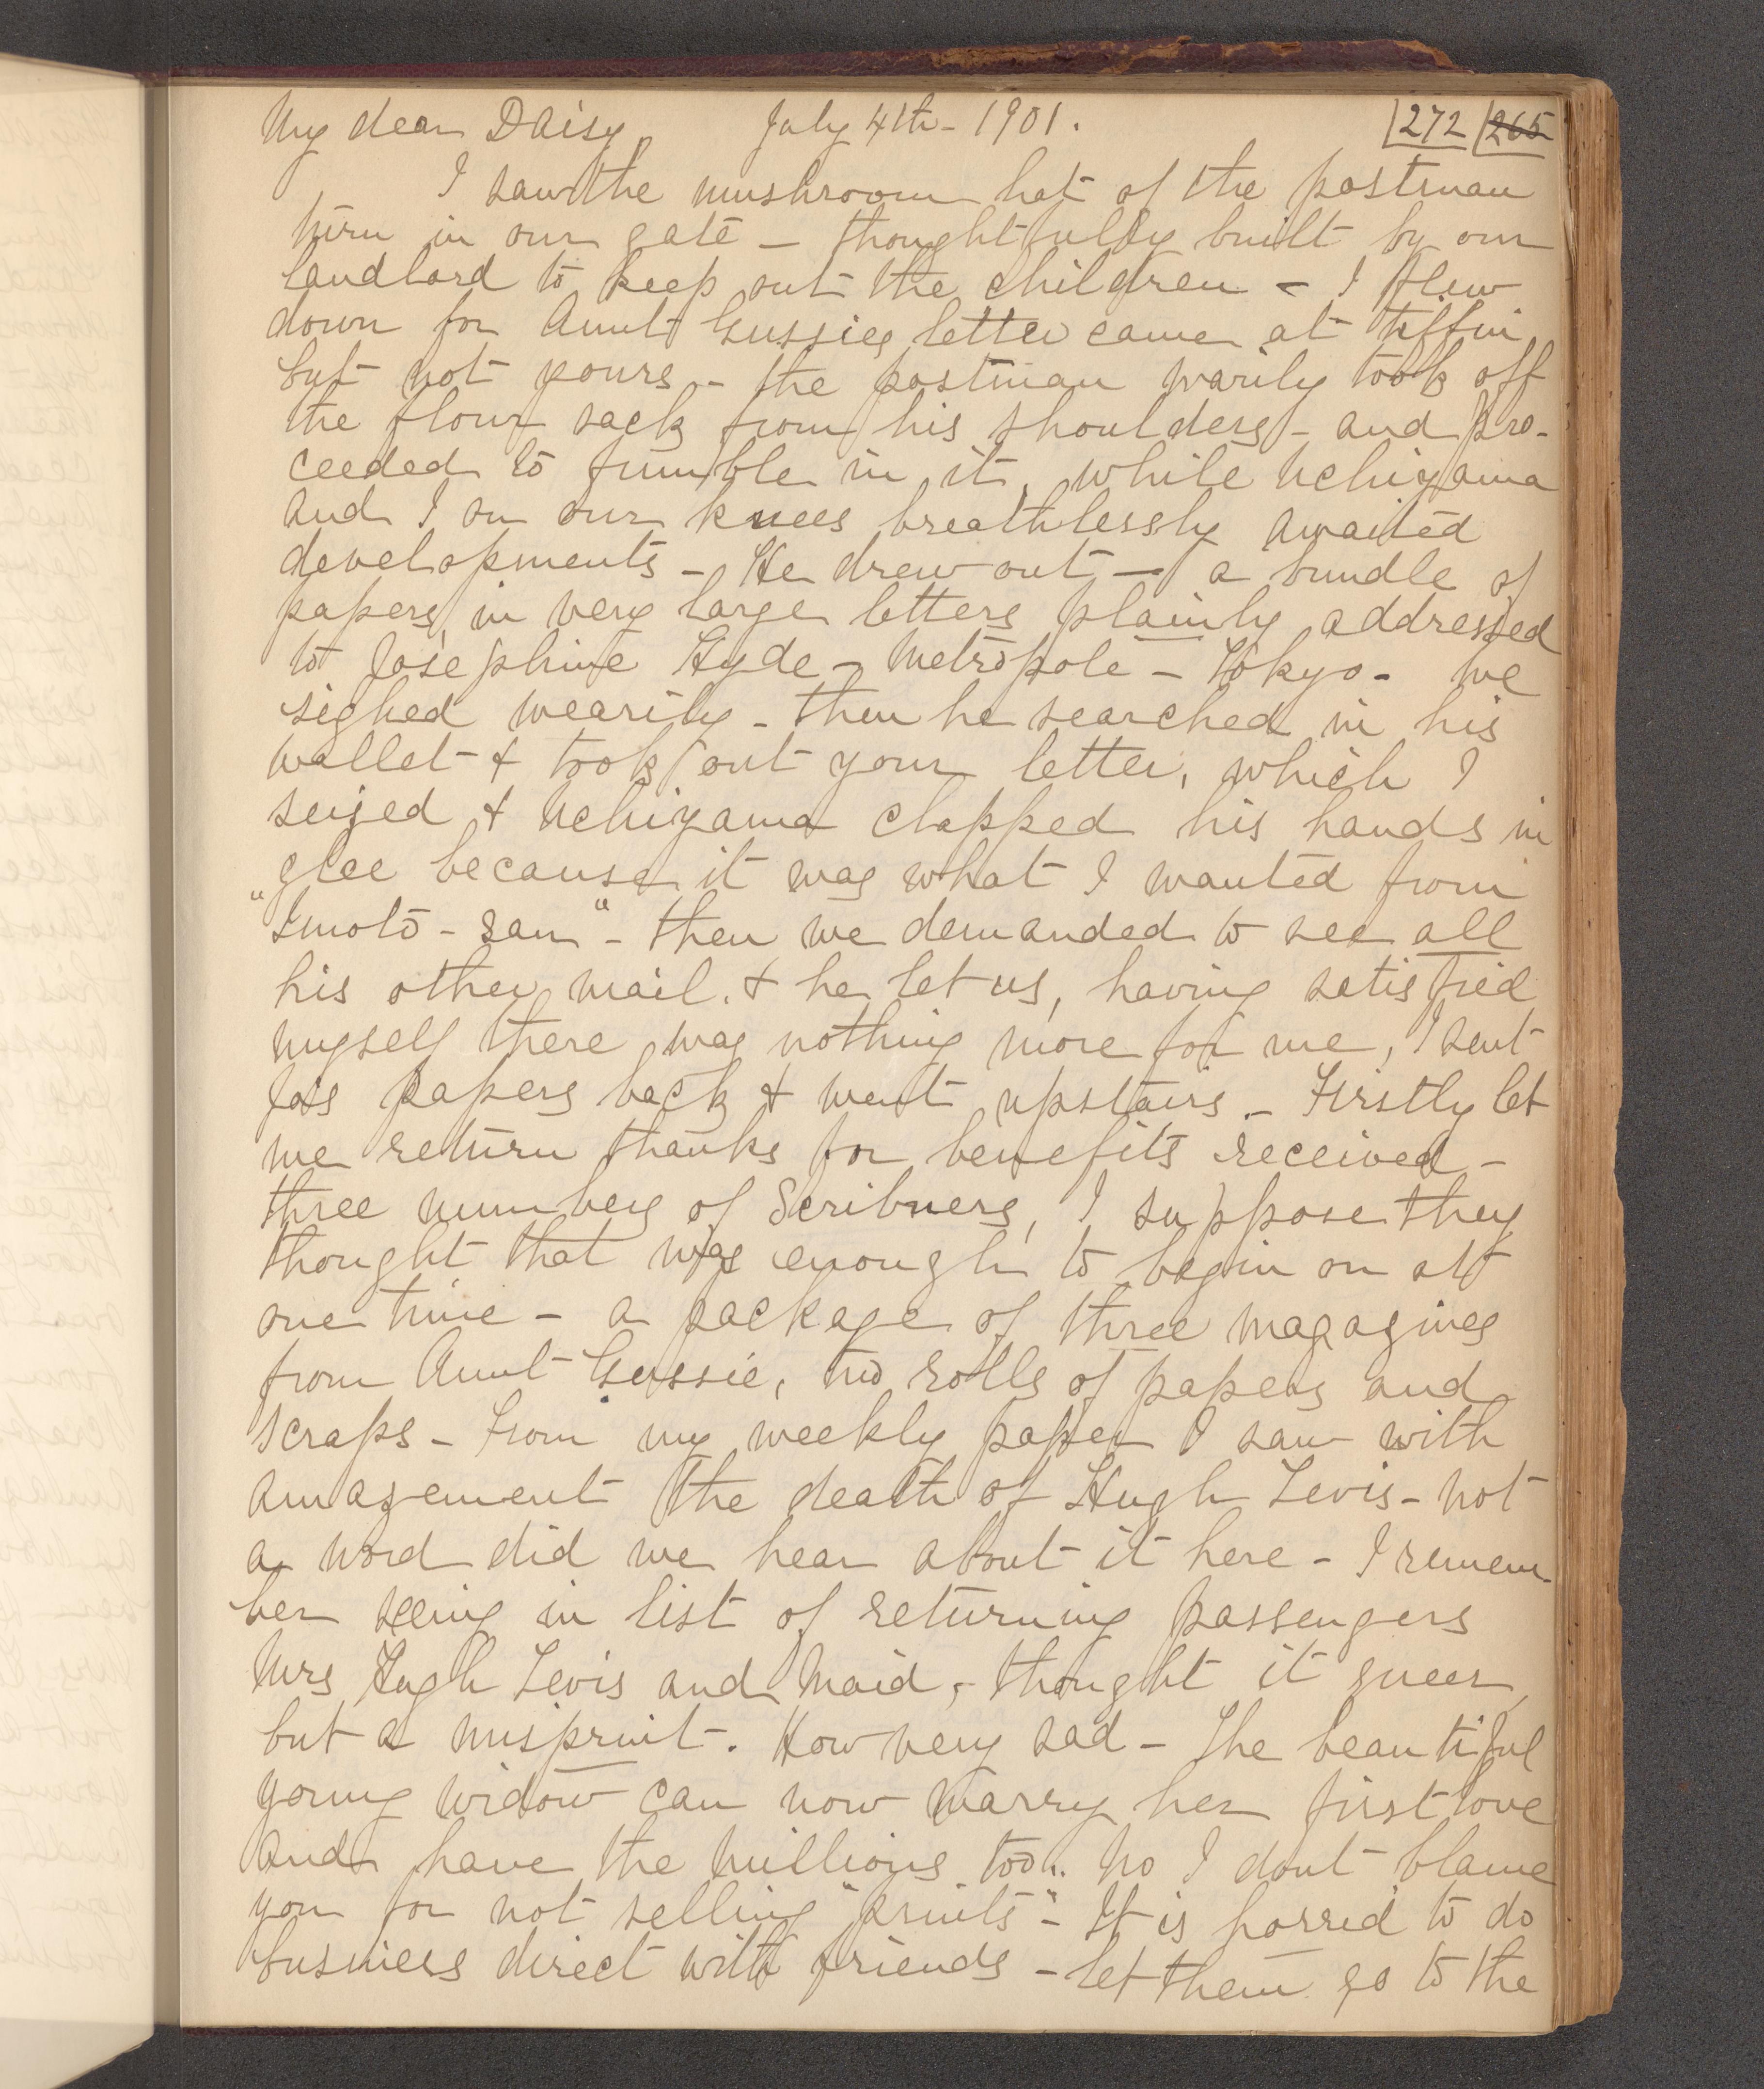 My dear Daisy, July 4th - 1901. 272 265
I saw the mushroom hat of the postman
turn in our gate - thoughtfully built by our
landlord to keep out the children - I flew
down for Aunt Gussies letter came at tiffin
but not yours - the postman warily took off
the flour sack from his shoulders - and pro-
ceeded to fumble in it, while Uchiyama
and I on our knees breathlessly awaited
developments - He drew out - a bundle of
papers, in very large letters plainly addressed
to Josephine Hyde - Metropole - Tokyo - we
sighed wearily - then he searched in his
wallet & took out your letter, which I
seized & Uchiyama clapped his hands in
glee because it was what I wanted from
"Imoto - san" - then we demanded to see all
his other mail. & he let us, having satisfied
myself there was nothing more for me, I sent
Jo's papers back & went upstairs - Firstly let
me return thanks for benefits received -
three numbers of Scribners, I suppose they
thought that was enough to begin on at
one time - a package of three magazines
from Aunt Gussie, two rolls of papers and
scraps - From my weekly paper I saw with
amazement the death of Hugh Tevis - not
a word did we hear about it here - I remem-
ber seeing in list of returning passengers
Mrs Hugh Tevis and Maid, - thought it queer
but a misprint. How very sad - The beautiful
young widow can now marry her first love
and have the millions too.. No I dont blame
you for not selling "prints" - It is horrid to do
business direct with friends - let them go to the